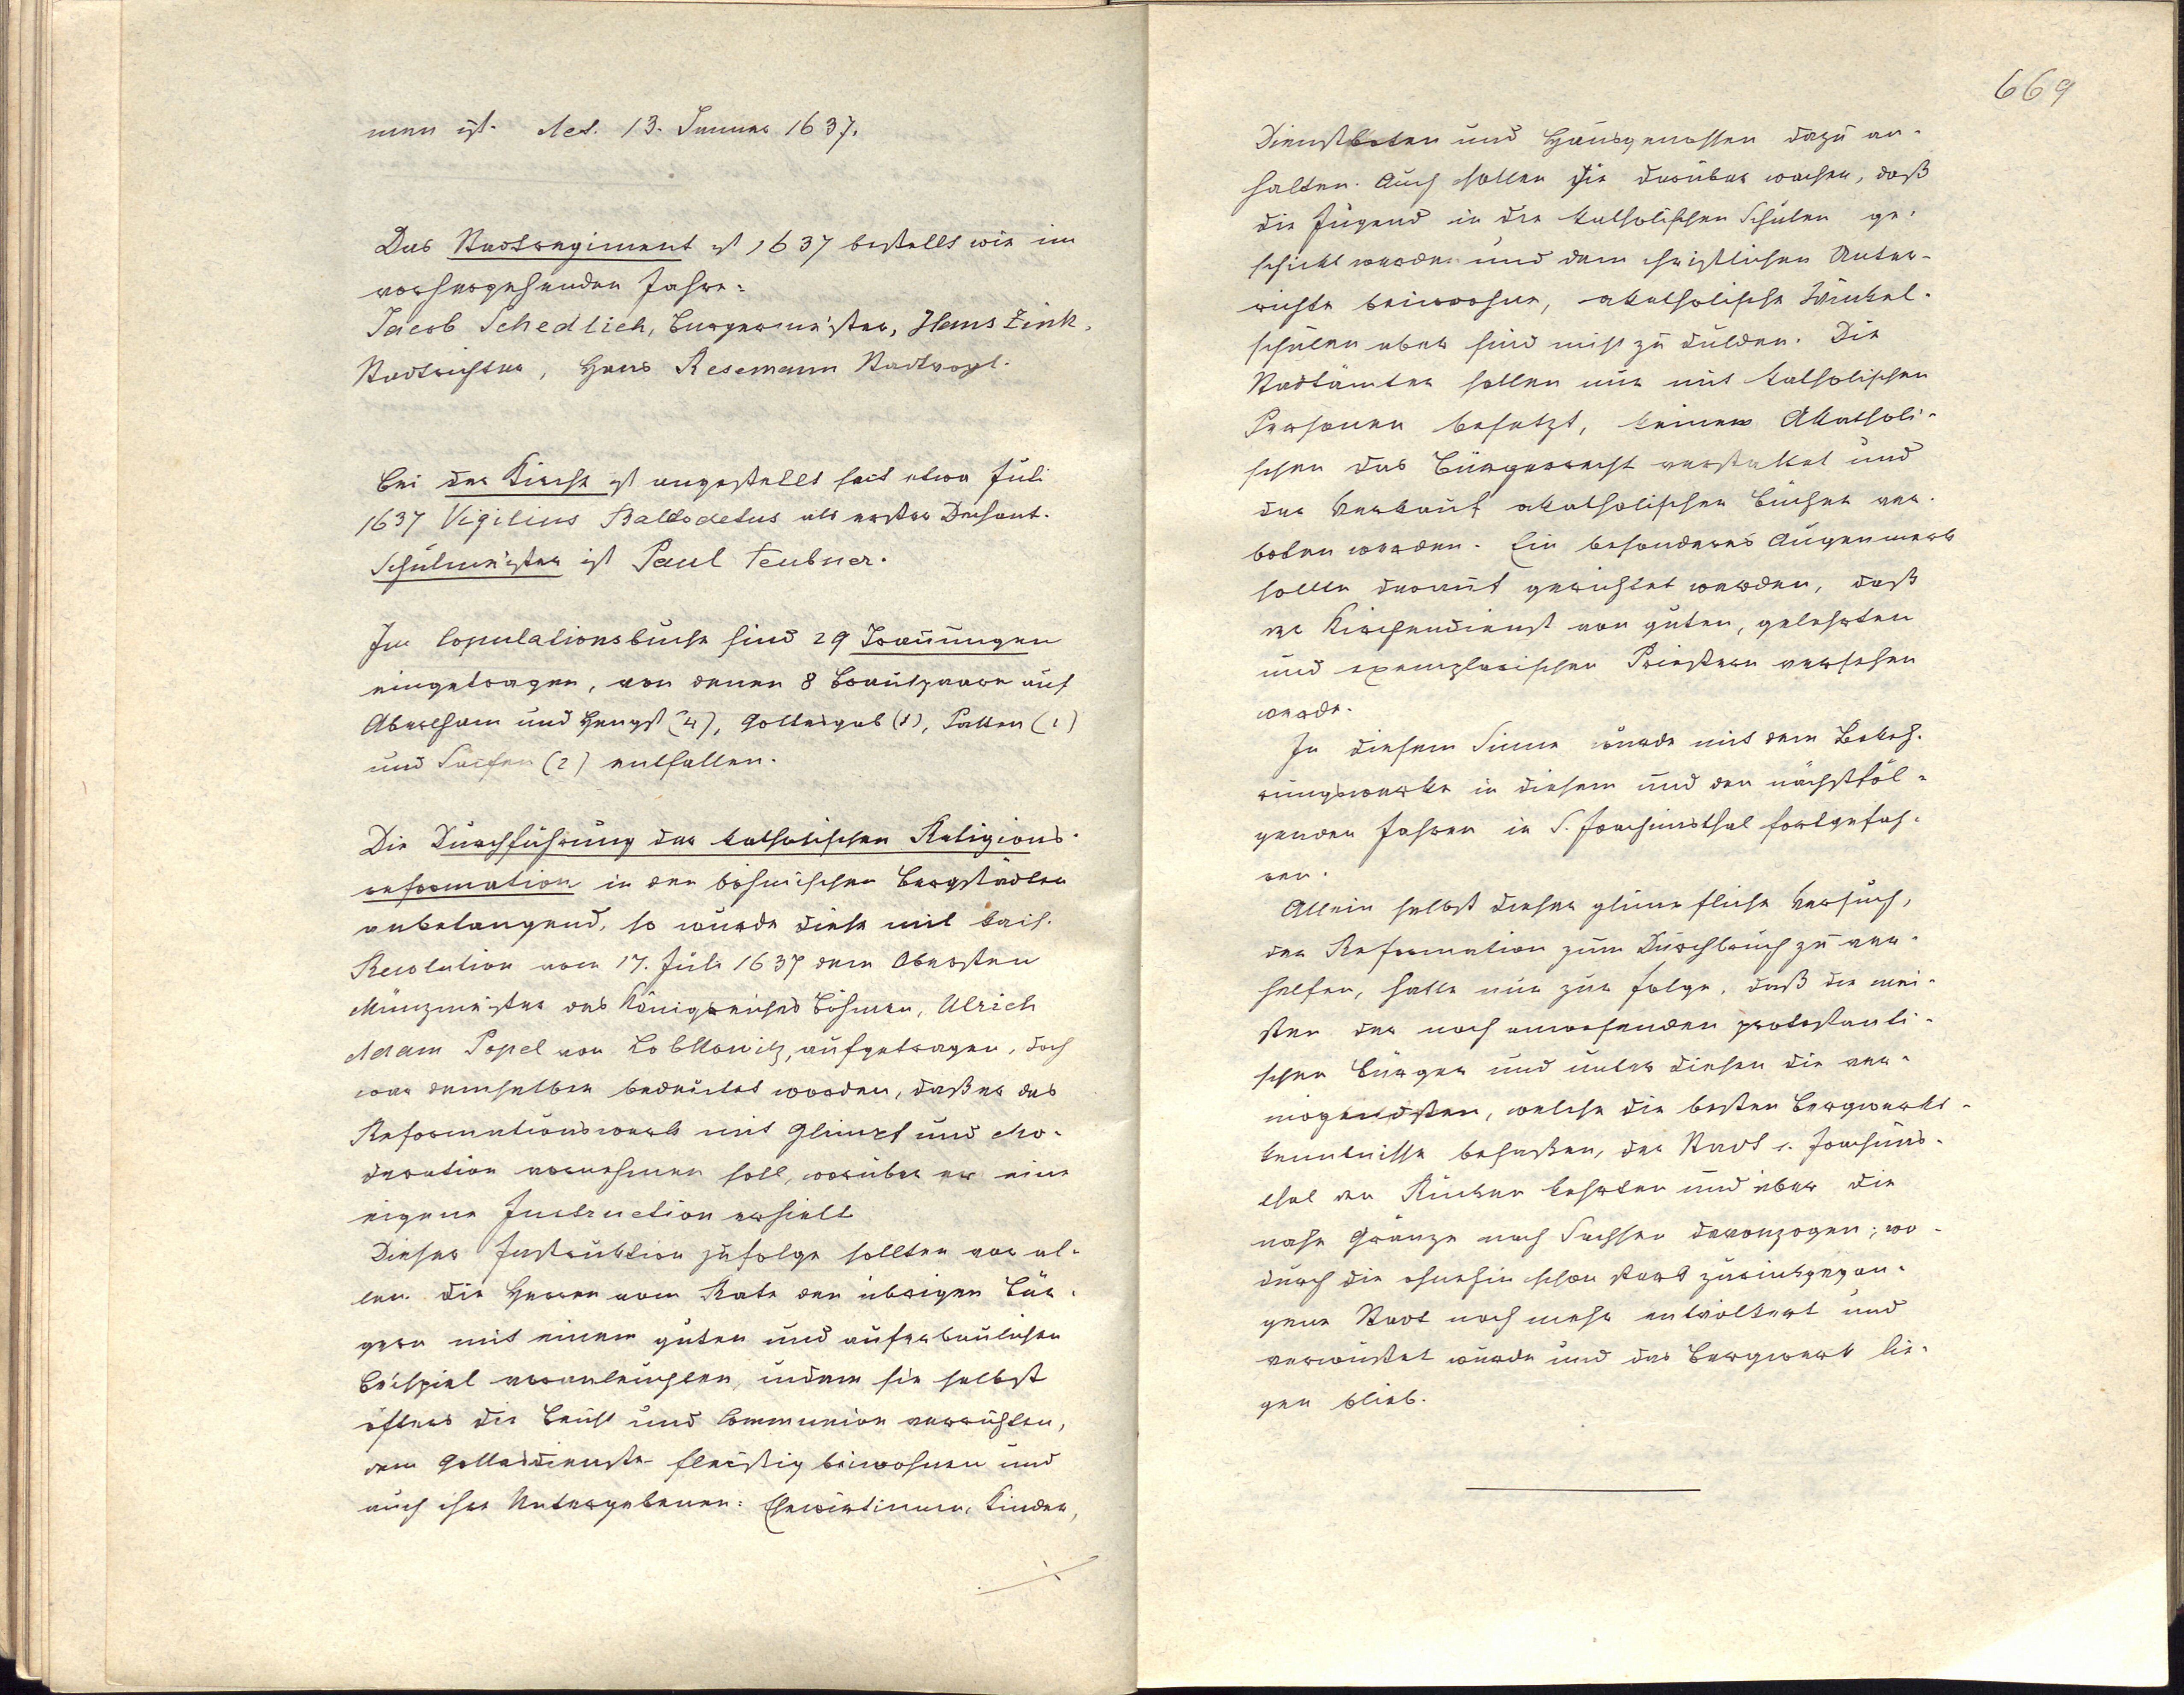 men ist. Act. 13. Januar 1637.
Das Stadtregiment ist 1637 bestellt wie im
vorhergehenden Jahre:
Jacob Schedlich, Burgermeister, Hans Zink,
Stadtrichter, Hans Resemann Stadtvogt.
Bei der Kirche ist angestellt seit etwa Juli
1637 Vigilius als erster Dechant.
Schulmeister ist Paul Teubner.
Im Copulationsbuche sind 29 Trauungen
eingetragen, von denen 8 Brautpaare auf
Abertham und Hengst (4), Gottesgab (1), Platten (1)
und Seifen (2) entfallen.
Die Durchführung der katholischen Religions-
reformation in den böhmischen Bergstädten
anbelangend, so wurde diese mit kais.
Resolution vom 17. Juli 1637 dem Obersten
Münzmeister des Königreiches Böhmen, Ulrich
Adam Popel von Lobkowitz, aufgetragen, doch
war demselben bedeutet worden, daß er das
Reformationswerk mit Glimpf und Mo-
deration vornehmen soll, worüber er eine
eigene Instruction erhielt.
Dieser Instruktion zufolge sollten vor al-
len die Herren vom Rate den übrigen Bür-
gern mit einem guten und auferbaulichen
Beispiel voranleuchten, indem sie selbst
öfters die Beicht und Communion verrichten,
dem Gottesdienste fleißig beiwohnen und
auch ihre Untergebenen: Ehewirtinnen, Kinder,
669
Dienstboten und Hausgenossen dazu an-
halten. Auch sollen sie darüber wachen, daß
die Jugend in die katholischen Schulen ge-
schickt werde und dem christlichen Unter-
richte beiwohne, akatholische Winkel-
schulen aber sind nicht zu dulden. Die
Stadtämter sollen nur mit katholischen
Personen besetzt, keinem Akatholi-
schen das Bürgerrecht verstattet und
der Verkauf akatholischer Bücher ver-
boten werden. Ein besonderes Augenmerk
sollte darauf gerichtet werden, daß
der Kirchendienst von guten, gelehrten
und exemplarischen Priestern versehen
werde.
In diesem Sinne wurde mit dem Bekeh-
rungswerke in diesem und den nächstfol-
genden Jahren in S. Joachimsthal fortgefah-
ren.
Allein selbst dieser glimpfliche Versuch,
der Reformation zum Durchbruch zu ver-
helfen, hatte nur zur Folge, daß die mei-
sten der noch anwesenden protestanti-
schen Bürger und unter diesen die ver-
mögendsten, welche die besten Bergwerks-
kenntnisse besaßen, der Stadt S. Joachims-
thal den Rücken kehrten und über die
nahe Gränze nach Sachsen davonzogen, wo-
durch die ohnehin schon stark zurückgegan-
gene Stadt noch mehr entvölkert und
verwüstet wurde und das Bergwerk lie-
gen blieb.